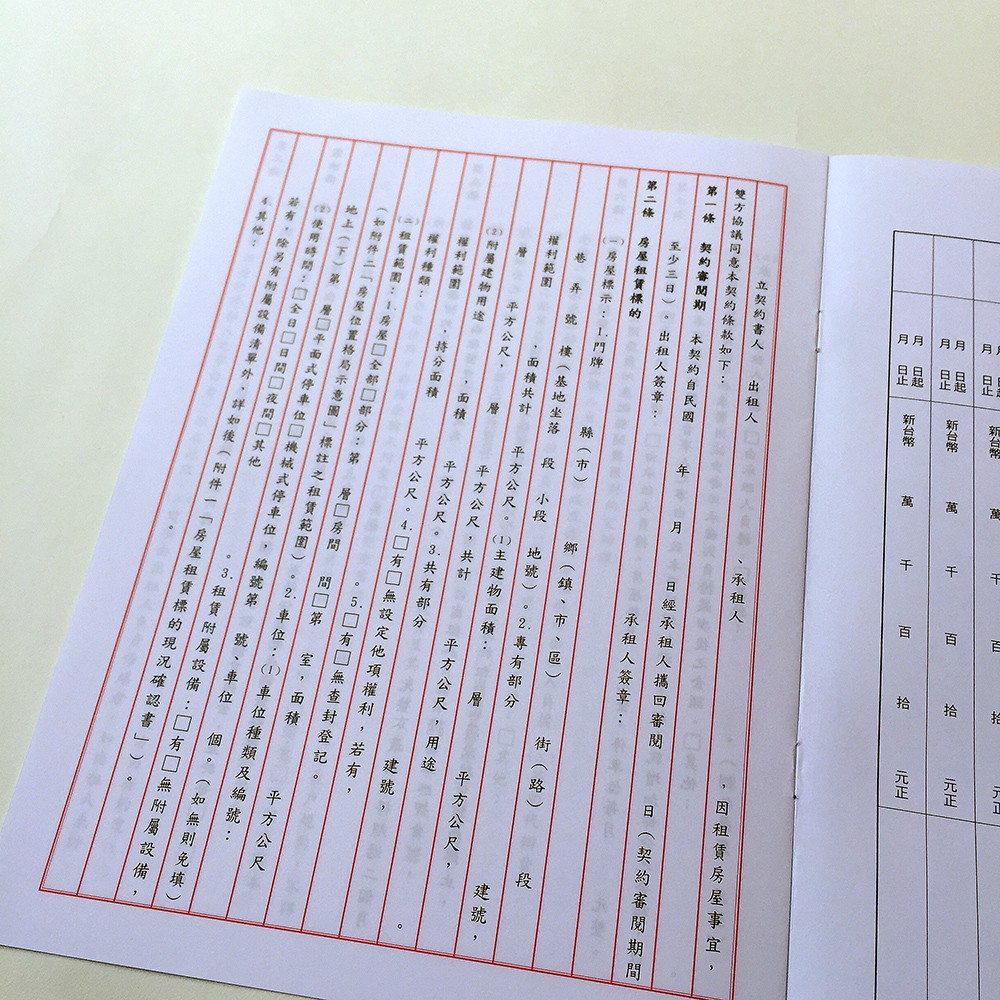 月 日起
月 日止
新台幣 萬 千 百 拾 元正
月 日起
月 日止
新台幣 萬 千 百 拾 元正
月 日起
月 日止
新台幣 萬 千 百 拾 元正
立契約書人 出租人 、承租人 ,因租賃房屋事宜,
雙方協議同意本契約條款如下:
第一條 契約審閱期 本契約自民國 年 月 日經承租人攜回審閱 日(契約審閱期間
至少三日)。出租人簽章: 承租人簽章:
第二條 房屋租賃標的
(一)房屋標示:1.門牌 縣(市) 鄉(鎮、市、區) 街(路) 段
巷 弄 號 樓(基地坐落 段 小段 地號)。2.專有部分 建號,
權利範圍 ,面積共計 平方公尺。(1)主建物面積: 層 平方公尺,
層 平方公尺, 層 平方公尺,共計 平方公尺,用途 。
(2)附屬建物用途 ,面積 平方公尺。3.共有部分 建號,
權利範圍 ,持分面積 平方公尺。4.□有□無設定他項權利,若有,
權利種類: 。5.□有□無查封登記。
(二)租賃範圍:1.房屋□全部□部分:第 層□房間 間□第 室,面積 平方公尺
(如附件二「房屋位置格局示意圖」標註之租賃範圍)。2.車位:(1)車位種類及編號:
地上(下)第 層□平面式停車位□機械式停車位,編號第 號、車位 個。(如無則免填)
(2)使用時間:□全日□日間□夜間□其他 。3.租賃附屬設備:□有□無附屬設備,
若有,除另有附屬設備清單外,詳如後(附件一「房屋租賃標的現況確認書」)。
4.其他: 。